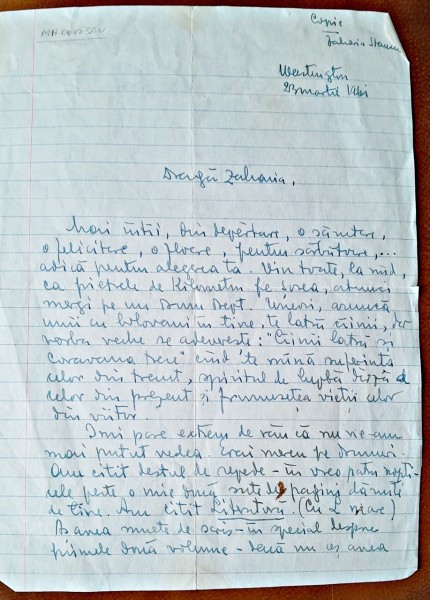 Copie
Zaharia Stancu
Washington
23 martie 1961
Dragă Zaharia,
Mai întîi, din depărtare, o sănătare,
o felicitare, o floare, pentru sărbătoare,...
adică pentru alegerea ta. Vin toate, la rînd,
ca pietrele de kilometri pe șosea, atunci
mergi pe un drum drept. Uneori, aruncă
unii cu bolovani în tine, te latră cîinii, dar
vorba veche se adeverește: "Cîinii latră și
caravana trece" cînd te mînă suferința
celor din trecut, spiritul de luptă dîrză a
celor din prezent și frumusețea vieții celor
din viitor.
Îmi pare extrem de rău că nu ne-am
mai putut vedea. Erai mereu pe drumuri.
Am citit destul de repede - în vreo patru nopți -
cele peste o mie două sute de pagini dăruite
de tine. Am citit Literatură (cu L mare)
Aș avea multe de scris - în special despre
primele două volume - dacă nu aș avea